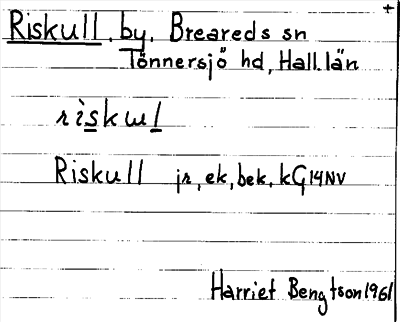 +
Riskull, by, Breareds sn
Tönnersjö hd, Hall. län
riskul
Riskull jr, ek, bek, kG14NV
Harriet Bengtson 1961